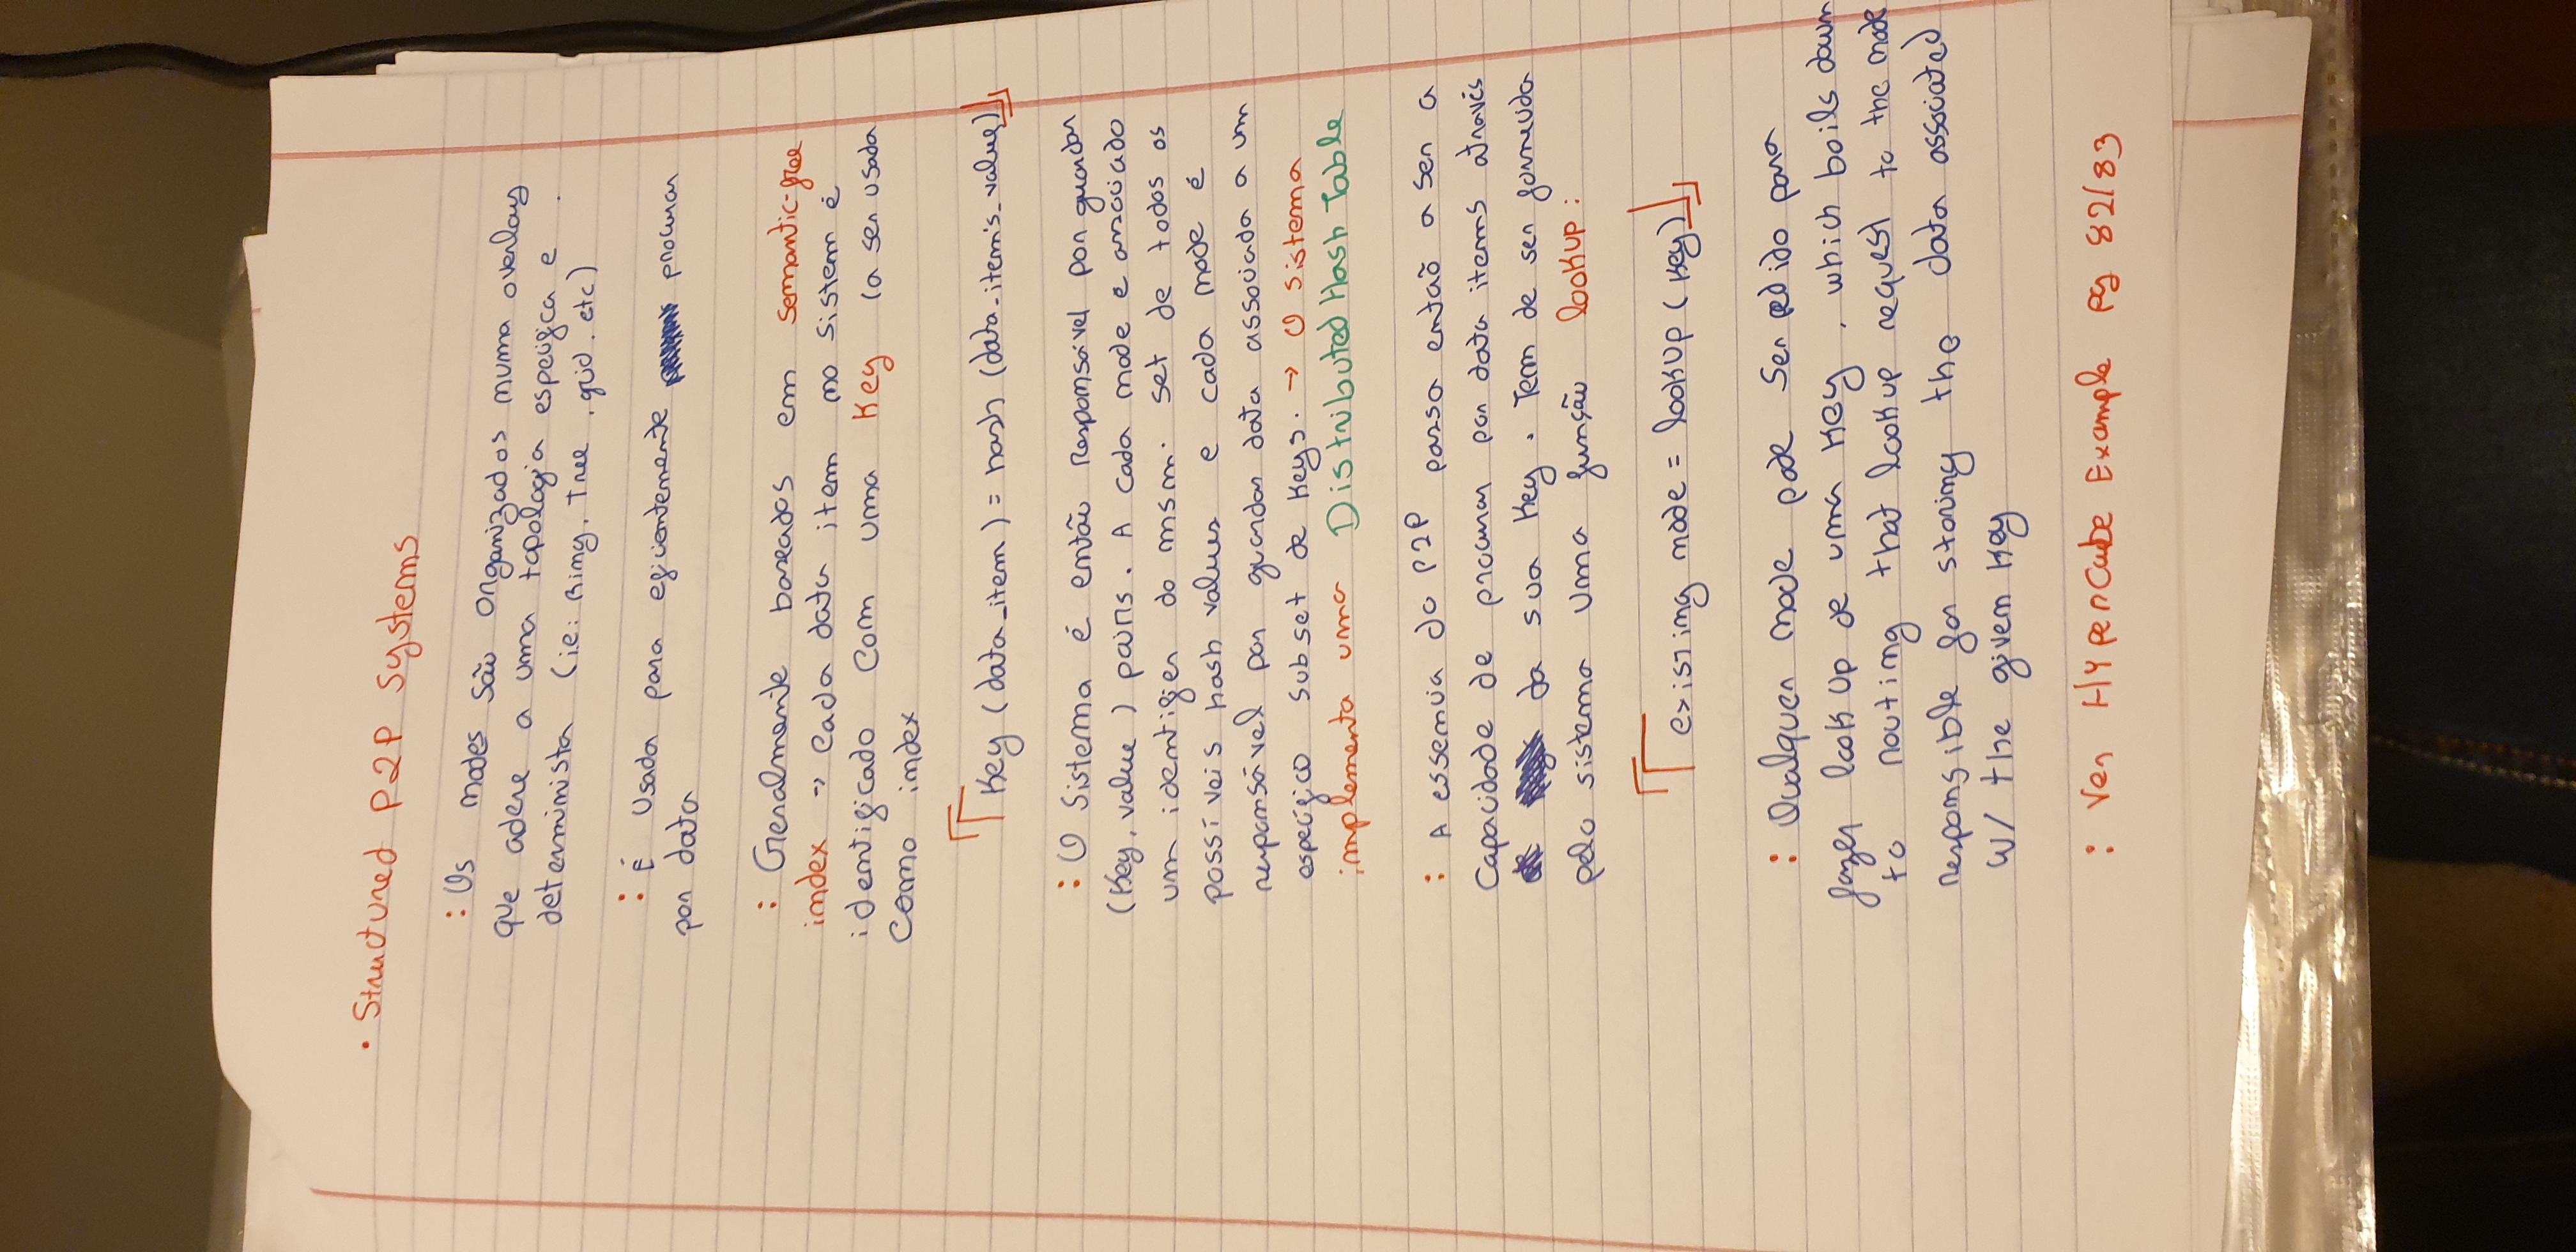 • Structured P2P Systems
: Os nodes são organizados numa overlay
que adere a uma topologia específica e
determinista (i.e: Ring, Tree, grid, etc)
: É Usada para eficientemente procurar
por data
: Geralmente baseados em semantic-free
index → Cada data item no sistem é
identificado com uma Key (a ser usada
como index
Key (data_item) = hash (data-item's-value)
: O Sistema é então Responsável por guardar
(Key, value) pairs. A cada node e associado
um identifier do msm. set de todos os
possíveis hash values e cada node é
responsável por guardar data associada a um
específico subset de Keys. → O sistema
implementa uma Distributed Hash Table
: A essencia do P2P passa então a ser a
Capacidade de procurar por data items através
da sua Key. Tem de ser fornecida
pelo sistema uma função lookup:
existing node = lookup (Key)
: Qualquer node pode ser pedido para
fazer look up de uma Key, which boils down
to routing that lookup request to the node
responsible for storing the data associated
w/ the given Key
: Ver HyperCube Example pg 82/83